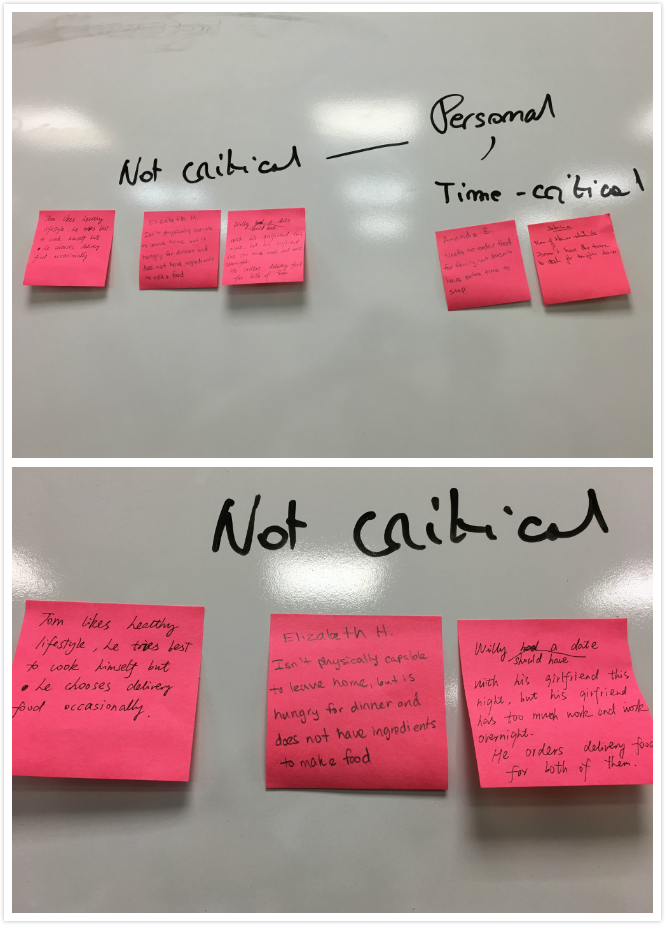 Personal
Not critical
Time-critical
Tom likes healthy
lifestyle, he tries best
to cook himself but
he chooses delivery
food occasionally
Elizabeth H.
Isn't physically capable
to leave home, but is
hungry for dinner and
does not have ingredients
to make food
Willy
with his girlfriend this
night, but his girlfriend
has too much work and work
overnight.
He orders delivery food
for both of them.
Amanda E.
needs to order food
for family, but doesn't
have extra time to
stop
Doesn't have the time
to cook for tonight dinner
Not critical
Tom likes healthy
lifestyle, he tries best
to cook himself but
• he chooses delivery
food occasionally.
Elizabeth H.
Isn't physically capable
to leave home, but is
hungry for dinner and
does not have ingredients
to make food
Willy had a date
should have
with his girlfriend this
night, but his girlfriend
has too much work and work
overnight.
He orders delivery food
for both of them.